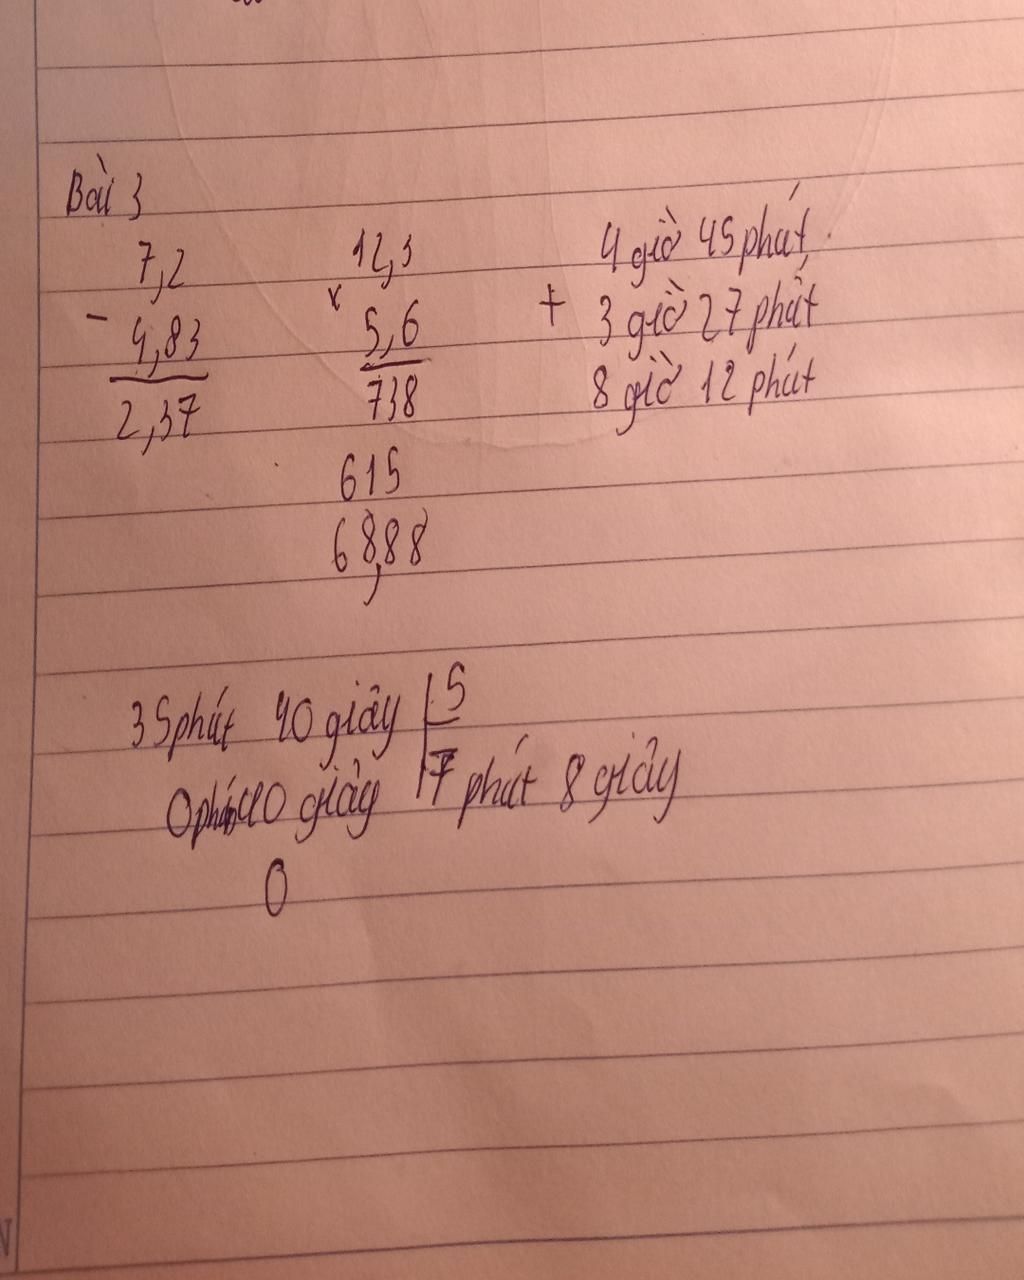 Bài 3
7,2
- 4,83
2,37
12,3
x 5,6
738
615
68,88
4 giờ 45 phút
+ 3 giờ 27 phút
8 giờ 12 phút
35 phút 40 giây | 5
0 phút 40 giây 7 phút 8 giây
0